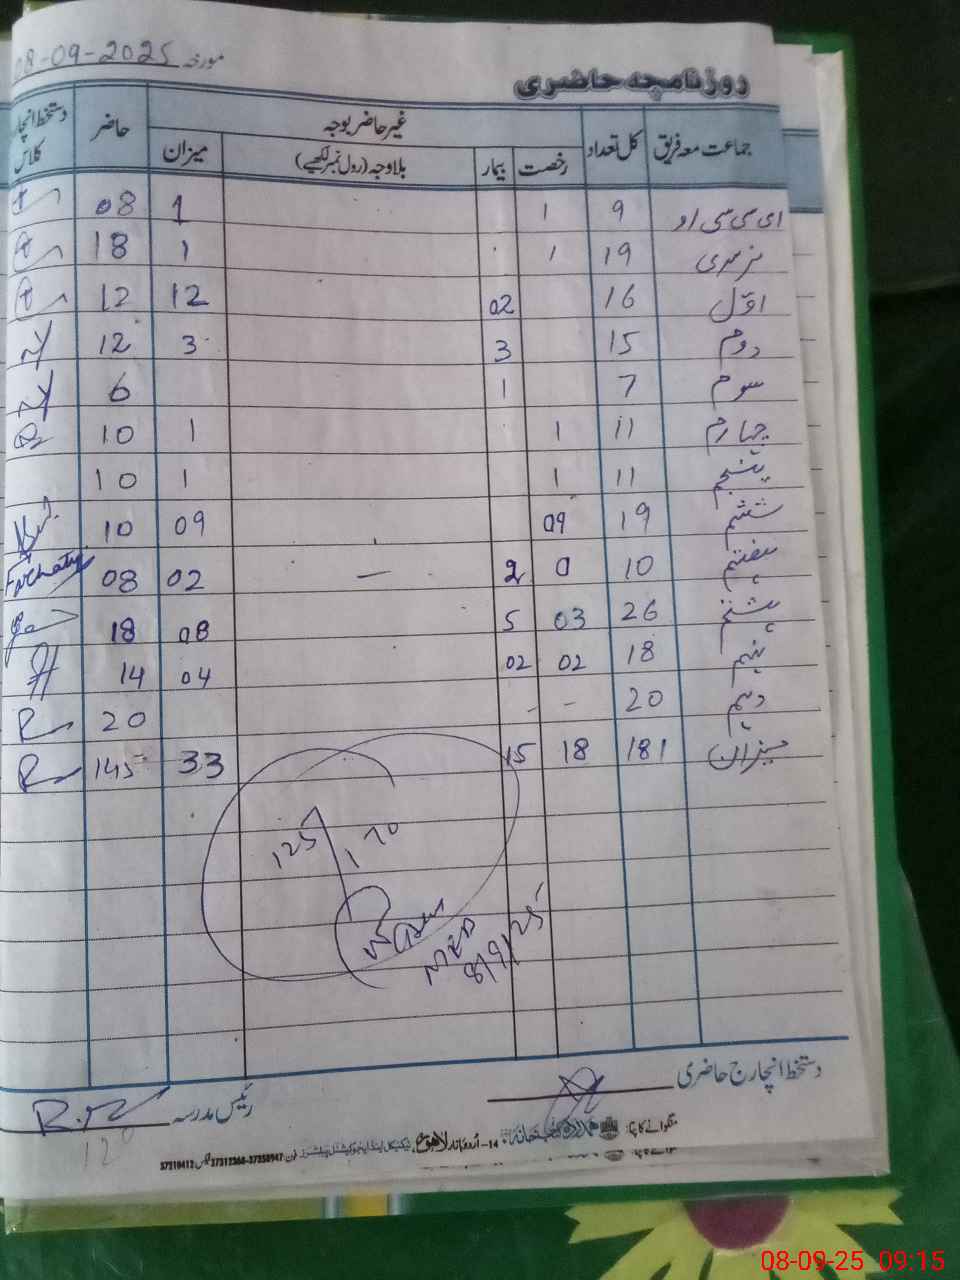 مورخہ 08-09-2025
روزنامچہ حاضری
جماعت معہ فریق کل تعداد غیر حاضر بوجہ حاضر دستخط انچارج کلاس
رخصت بیمار بلاوجہ (رول نمبر لکھیے) میزان
ای سی سی او 9 1 1 08
نرسری 19 1 1 18
اوّل 16 02 12 12
دوم 15 3 3 12
سوم 7 1 6
چہارم 11 1 1 10
پنجم 11 1 1 10
ششم 19 09 09 10
ہفتم 10 0 2 — 02 08
ہشتم 26 03 5 08 18
نہم 18 02 02 04 14
دہم 20 - - 20
میزان 181 18 15 33 145
125 / 170
8/9/25
دستخط انچارج حاضری
رئیس مدرسہ
منگوانے کا پتا:
14-اُردو بازار لاہور
37310412 37312368-37350947
08-09-25 09:15